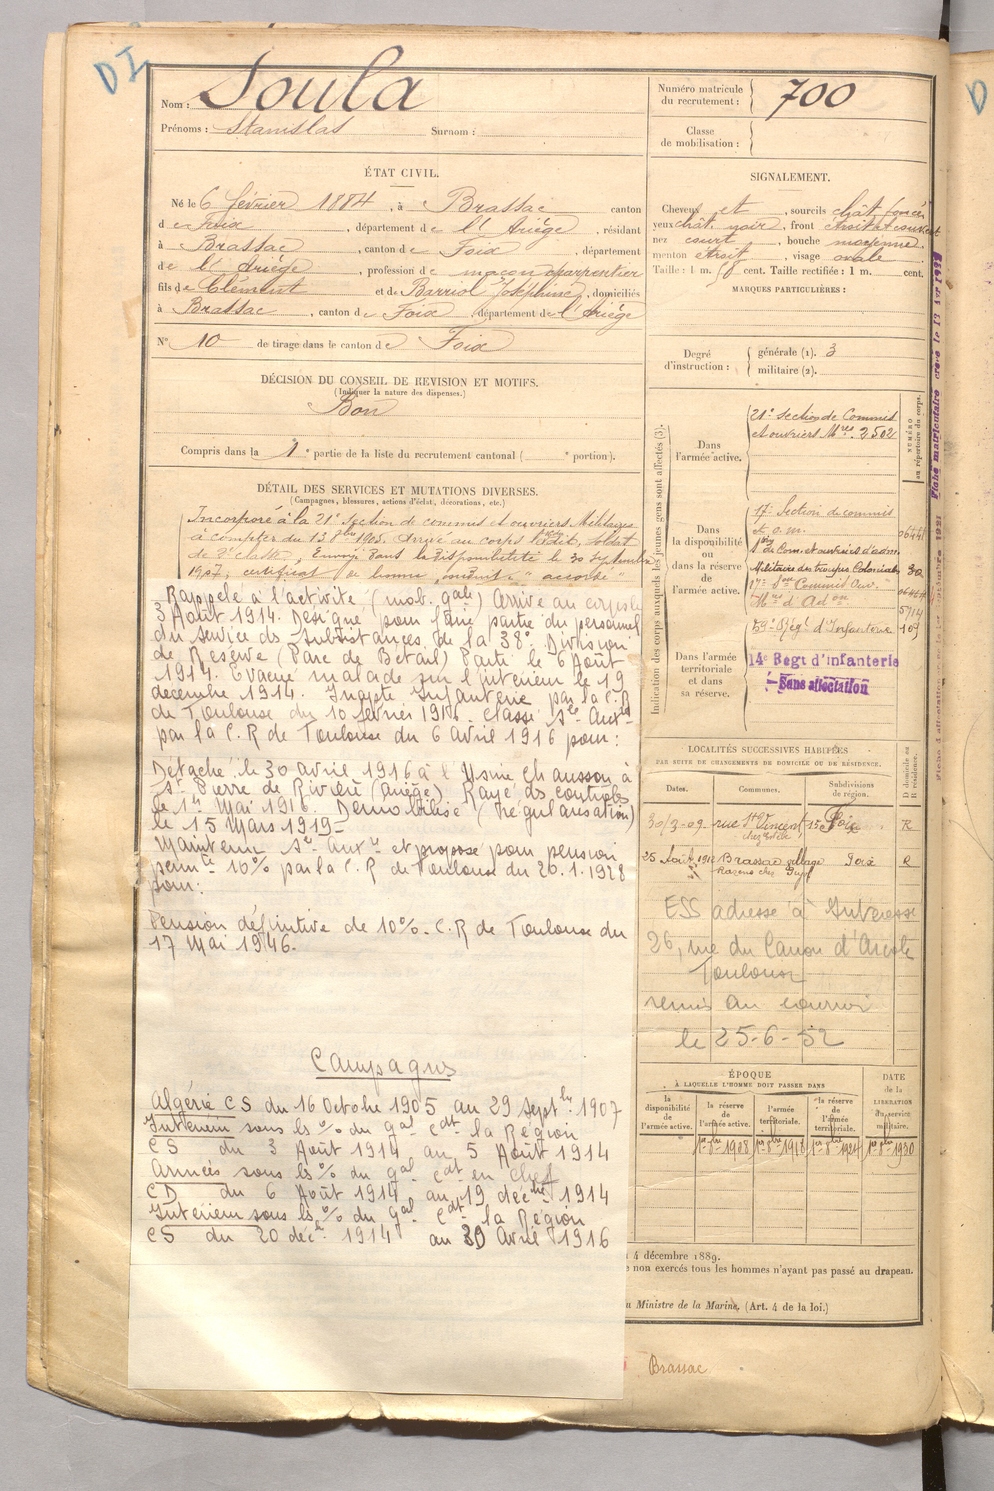 DI
Nom : Soula
Prénoms : Stanislas Surnom :
ÉTAT CIVIL.
Né le 6 février 1884, à Brassac canton
de Foix, département de l'Ariège, résidant
à Brassac, canton de Foix, département
de l'Ariège, profession de maçon charpentier
fils de Clément et de Barriol Joséphine, domiciliés
à Brassac, canton de Foix département de l'Ariège
N° 10 de tirage dans le canton de Foix
DÉCISION DU CONSEIL DE REVISION ET MOTIFS.
(Indiquer la nature des dispenses.)
Bon
Compris dans la 1e partie de la liste du recrutement cantonal ( e portion).
DÉTAIL DES SERVICES ET MUTATIONS DIVERSES.
(Campagnes, blessures, actions d'éclat, décorations, etc.)
Incorporé à la 21e Section de commis et ouvriers Militaires
à compter du 15 8bre 1905. Arrivé au corps ledit, soldat
de 2e classe, Envoyé dans la disponibilité le 30 Septembre
1907, certificat de bonne conduite "accordé"
Rappelé à l'activité (mob. gale) Arrivé au corps le
3 Août 1914. Désigné pour faire partie du personnel
du service des subsistances de la 38e Division
de Réserve (Parc de Bétail) Parti le 6 Août
1914. Evacué malade sur l'intérieur le 19
décembre 1914. Inapte Infanterie par la C.R
de Toulouse du 10 février 1916. Classé Sce Auxre
par la C.R de Toulouse du 6 Avril 1916 pour:
Détaché le 30 avril 1916 à l'Usine Chausson à
St Pierre de Rivière (ariège) Rayé des contrôles
le 1er Mai 1916. Démobilisé (régularisation)
le 15 Mars 1919-
Maintenu Sce Auxre et proposé pour pension
permte 10% par la C.R de Toulouse du 26.1.1928
pour:
Pension définitive de 10%. C.R de Toulouse du
17 Mai 1946.
Campagnes
Algérie CS du 16 Octobre 1905 au 29 Septbre 1907
Intérieur sous les % du Gal Cdt la Région
CS du 3 Août 1914 au 5 Août 1914
Armées sous les % du Gal Cdt en Chef
CD du 6 Août 1914 au 19 décbre 1914
Intérieur sous les % du Gal Cdt la Région
CS du 20 décbre 1914 au 30 Avril 1916
Numéro matricule
du recrutement : 700
Classe
de mobilisation :
SIGNALEMENT.
Cheveux et, sourcils chât foncés
yeux chât. noir, front étroit et couvert
nez court, bouche moyenne
menton étroit, visage ovale
Taille : 1 m. cent. Taille rectifiée : 1 m. cent.
MARQUES PARTICULIÈRES :
Degré
d'instruction :
générale (1). 3
militaire (2).
Indication des corps auxquels les jeunes gens sont affectés (3).
NUMÉRO
au répertoire du corps.
Dans
l'armée active.
21e Section de Commis
et ouvriers Mres. 2502
Dans
la disponibilité
ou
dans la réserve
de l'armée active.
17e Section de commis
et o. m.
Son de Com. et ouvriers d'adm.
Militaires des troupes Coloniales 30
17e Son Commis Ouv.
Mres d'Adon 5714
59e Régt d'Infanterie 109
Dans l'armée
territoriale
et dans
sa réserve.
14e Regt d'infanterie
Sans affectation
LOCALITÉS SUCCESSIVES HABITÉES
PAR SUITE DE CHANGEMENTS DE DOMICILE OU DE RÉSIDENCE.
Dates. Communes. Subdivisions
de région. D domicile ou
R résidence.
30/3-09 rue St Vincent 15 Foix R
25 Août 1912 Brassac village Foix R
ESS adresse à Intéressé
26, rue du Canon d'Arcole
Toulouse
remis au courrier
le 25-6-52
ÉPOQUE
À LAQUELLE L'HOMME DOIT PASSER DANS
DATE
de la
LIBÉRATION
du service
militaire.
la
disponibilité
de
l'armée active.
la réserve
de
l'armée active.
l'armée
territoriale.
la réserve
de
l'armée
territoriale.
1er 8bre 1908 1er 8bre 1918 1er 8bre 1924 1er 8bre 1930
4 décembre 1889.
non exercés tous les hommes n'ayant pas passé au drapeau.
u Ministre de la Marine, (Art. 4 de la loi.)
Brassac
D